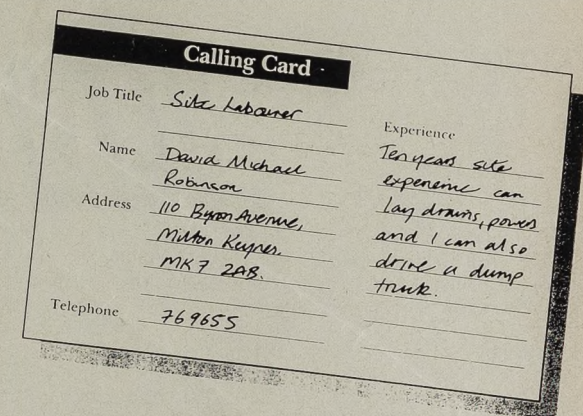 Calling Card
Job Title Site Labourer
Name David Michael
Robinson
Address 110 Byron Avenue,
Milton Keynes.
MK7 2AB.
Telephone 769655
Experience
Ten years site
experience can
lay drains,
and I can also
drive a dump
truck.